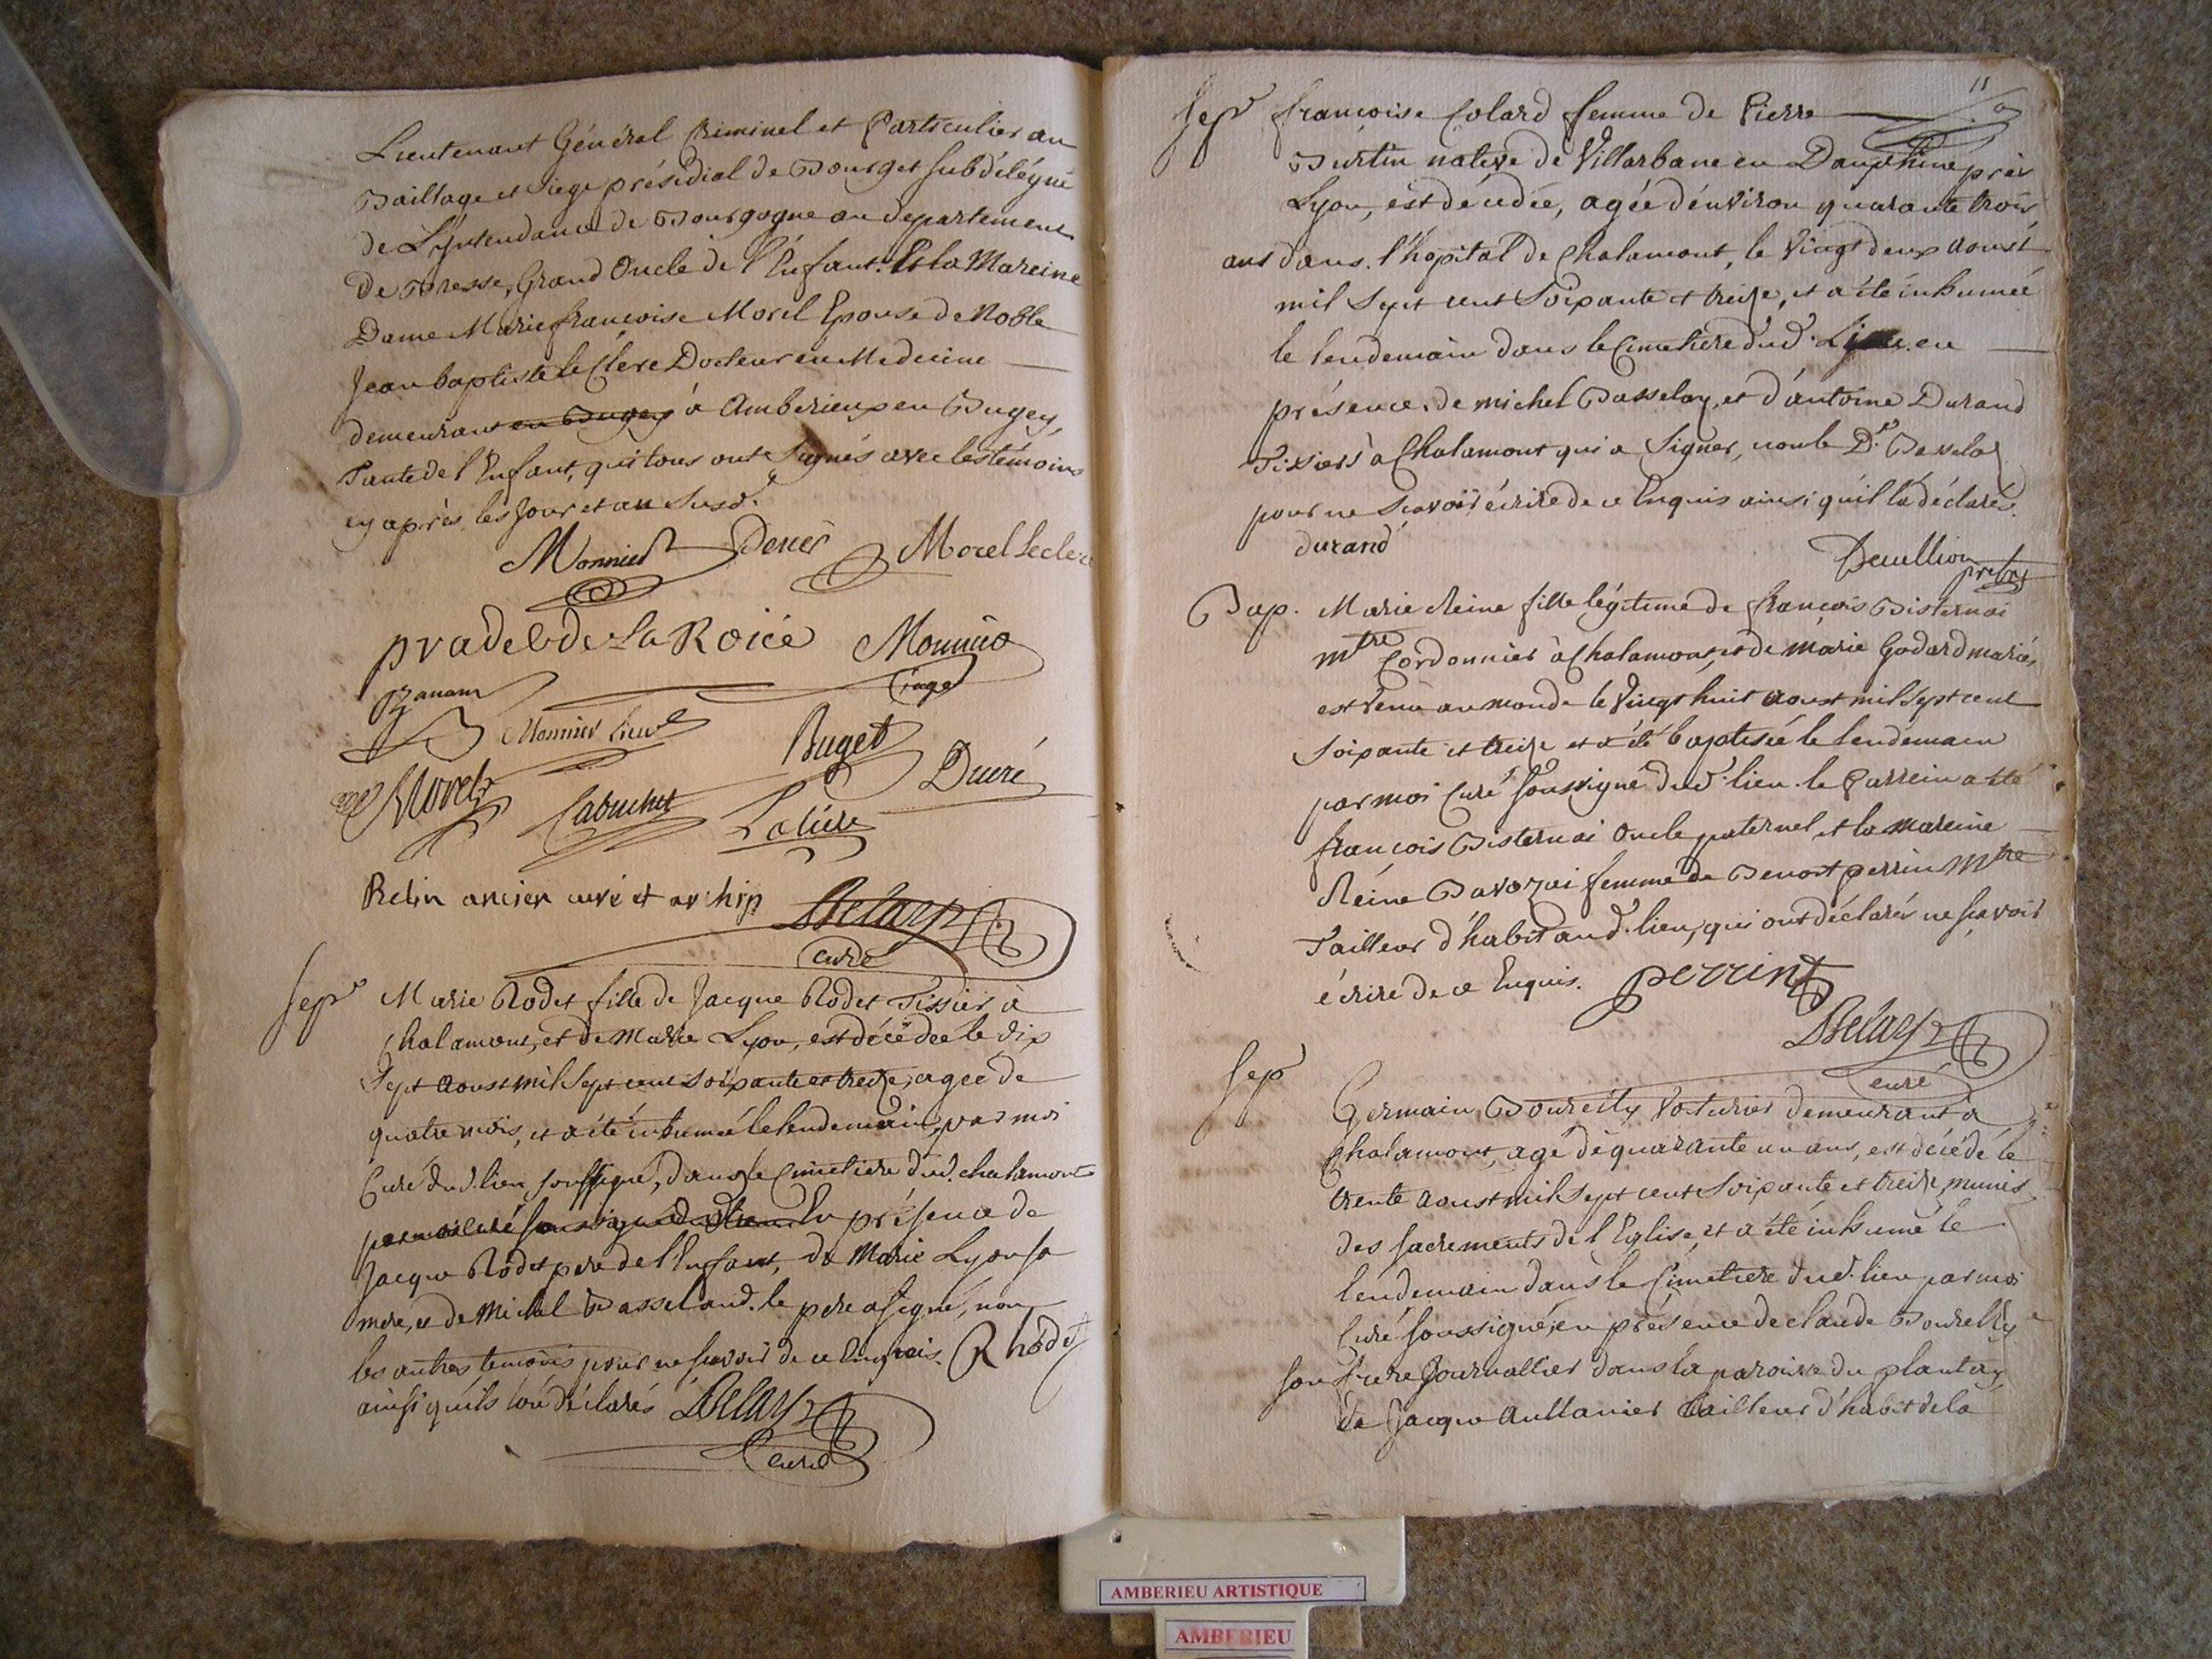 Lieutenant Général Criminel et Particulier au
Baillage et Siege présidial de Bourg et subdélégué
de L'yntendance de Bourgogne au departement
de Bresse, Grand Oncle de l'Enfant. Et la Mareine
Dame Marie françoise Morel Epouse de Noble
Jean baptiste le Clerc Docteur en Medecine
demeurant en Bugey à Amberieux en Bugey,
Tante de l'Enfant, qui tous ont signés avec les témoins
cy après, les Jour et an susd.
Monnier Morel Leclerc
pradel de La Roice Monnier
Monnier
Buget
Morel Cabuchet Ducré
Relin ancien curé et archip Delary
curé
Sepre Marie Rodet fille de Jacque Rodet Tissier à
Chalamont, et de Marie Lyon, est décédée le dix
sept aoust mil sept cent soixante et treize, agée de
quatre mois, et a été inhumée le lendemain, par moi
Curé dud. lien soussigné, dans le Cimetiere dud. chalamont
par moi curé soussigné En présence de
Jacque Rodet pere de l'Enfant, de Marie Lyon sa
mere, et de Michel le pere a signé, non
les autres temoins pour ne savoir de ce Enquis. Rhodet
ainsi qu'ils l'on déclarés Delary
Curé
11
Sepre françoise Colard femme de Pierre
Burtin native de Villarbane en Dauphiné près
Lyon, est décédée, agée d'environ quarante trois
ans dans l'hopital de Chalamont, le Vingt deux aoust
mil sept cent soixante et treize, et a été inhumée
le lendemain dans le Cimetiere dud. en
présence de michel Basselay, et d'antoine Durand
Tissiers à Chalamont qui a signer, non le Dt.
pour ne scavoir écrire de ce Enquis ainsi qu'il la déclarés.
durand
pretre
Bap. Marie Reine fille légitime de françois Bisternai
mtre Cordonnier à Chalamont, et de marie Godard mariés,
est venuë au monde le Vingt huit aoust mil sept cent
soixante et treize et a été baptisée le lendemain
par moi Curé soussigné dud. lieu. le Parrein a été
françois Bisternai Oncle paternel, et la mareine
Reine femme de Benoit perrin Mtre
Tailleur d'habit aud. lieu, qui ont déclarés ne sçavoir
écrire de ce Enquis. perrin
Delary
curé
Sep
Germain Bourelly Voiturier demeurant à
Chalamont, agé de quarante un ans, est décédé le
trente aoust mil sept cent soixante et treize, munis
des sacrements de l'Eglise, et a été inhumé le
lendemain dans le Cimetiere dud. lieu par moi
Curé soussigné, en présence de claude Bourelly
son frere Journallier dans la paroisse du plantay
de Jacque Aullanier tailleur d'habit de la
AMBERIEU ARTISTIQUE
AMBERIEU